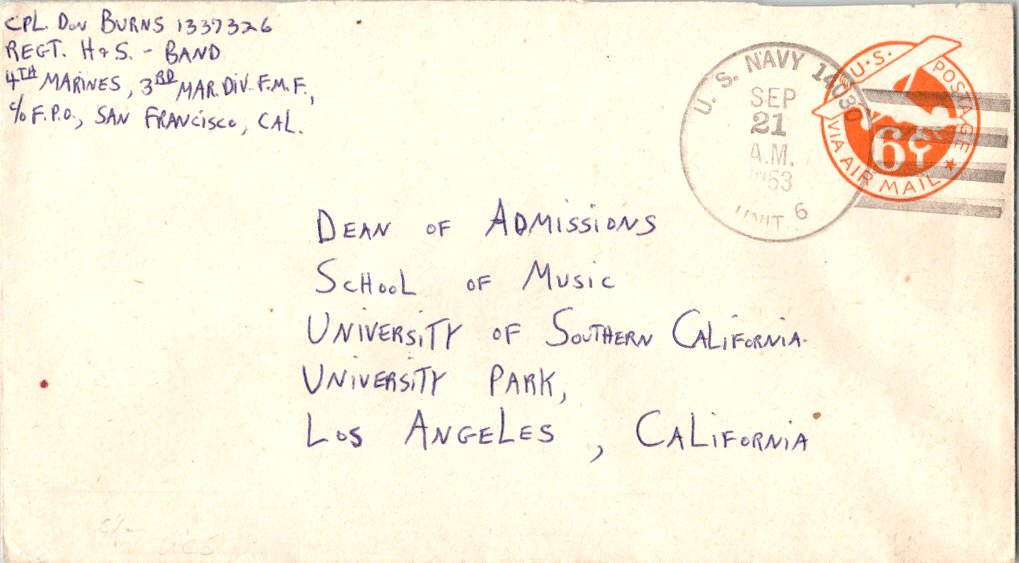 CPL. DON BURNS 1337326
REGT. H & S. - BAND
4TH MARINES, 3RD MAR. DIV. F.M.F.,
c/o F.P.O., SAN FRANCISCO, CAL.
U. S. NAVY 14030
SEP
21
A.M.
1953
UNIT 6
U.S. POSTAGE
6¢
VIA AIR MAIL
DEAN OF ADMISSIONS
SCHOOL OF MUSIC
UNIVERSITY OF SOUTHERN CALIFORNIA.
UNIVERSITY PARK,
LOS ANGELES, CALIFORNIA